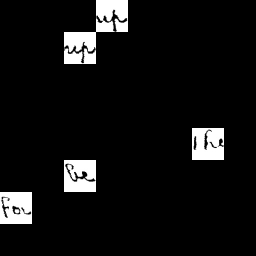 up
up
the
be
for